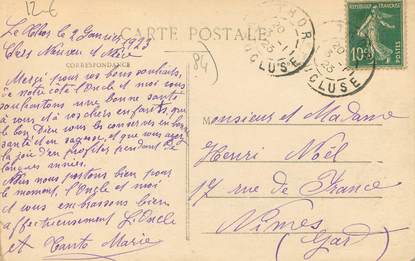 12-6
CARTE POSTALE
84
LE THOR
VAUCLUSE
POSTES
10c
Le Thor le 2 Janvier 1923
Chers Neveu et Nièce
CORRESPONDANCE
Merci pour vos bons souhaits,
de notre côté l'Oncle et moi vous
souhaitons une bonne santé
à vous et à vos chers enfants, que
le bon Dieu vous les conserves en bonne
santé et en sagesse, et que vous ayez
la joie d'en profiter pendant de
longues années.
Nous nous portons bien pour
le moment, l'Oncle et moi
et vous embrassons bien
affectueusement L'Oncle
et Tante Marie
Monsieur et Madame
Henri Noël
17 rue de France
Nîmes
(Gard)